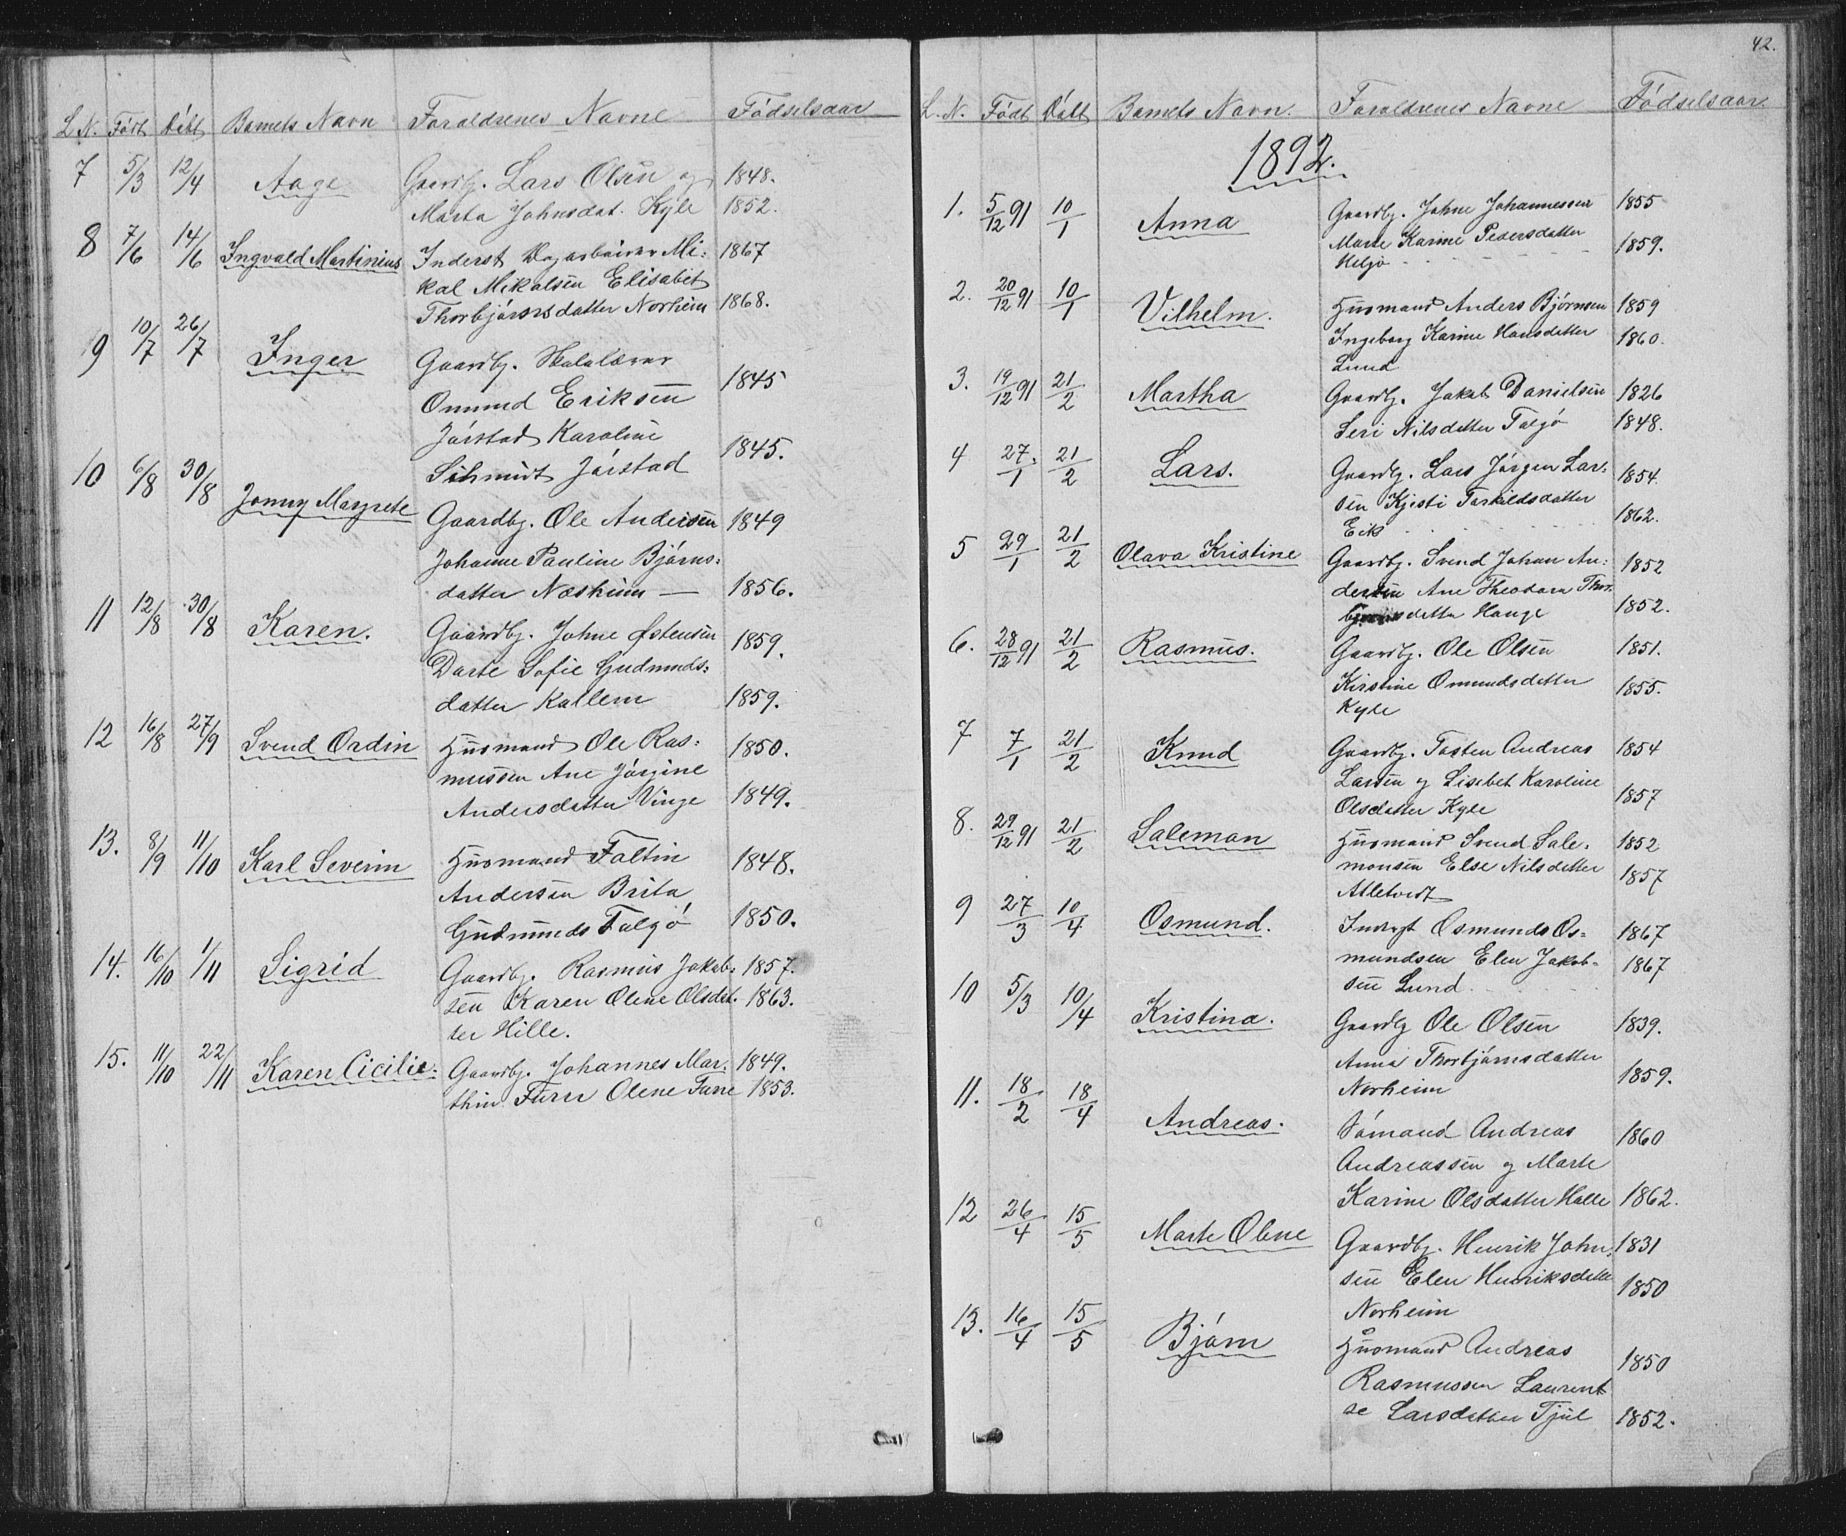 L. N. Født Døbt Barnets Navn Foraldrenes Navne Fødselsaar
7 5/3 12/4 Aage Gaardbg. Lars Olsen og 1848.
Marta Johnsdat. Kyle 1852.
8 7/6 14/6 Ingvald Martinius Inderst Dagarbeider Mi- 1867
kal Mikalsen Elisabet
Thorbjørnsdatter Norheim 1868.
9 10/7 26/7 Inger Gaardbg. Skolelærer
Omund Eriksen 1845
Jørstad Karoline
Schmidt Jørstad 1845.
10 6/8 30/8 Jonny Margrete Gaardbg. Ole Andersen 1849
Johanne Pauline Bjørns-
datter Næsheim — 1856.
11 12/8 30/8 Karen. Gaardbg. Johne Østensen 1859.
Darte Sofie Gudmunds-
datter Kallem 1859.
12 16/8 27/9 Svend Ordin Husmand Ole Ras- 1850.
mussen Ane Jørgine
Andersdatter Vinge 1849.
13. 8/9 11/10 Karl Severin Husmand Faltin 1848.
Andersen Brita
Gudmunds Talgø 1850.
14. 16/10 1/11 Sigrid Gaardbg. Rasmus Jakob- 1857.
sen Karen Olene Olsdat- 1863.
ter Hille.
15. 11/10 22/11 Karen Cicilie. Gaardbg. Johannes Mar- 1849.
thin Furre Olene Furre 1853.
42.
L. N. Født Døbt Barnets Navn. Foraldrenes Navne Fødselsaar.
1892.
1. 5/12 91 10/1 Anna Gaardbg. Johne Johannessen 1855
Marte Karine Pedersdatter 1859.
Helgø
2. 20/12 91 10/1 Vilhelm. Husmand Anders Bjørnsen 1859
Ingeborg Karine Hansdatter 1860.
Lund
3. 19/12 91 21/2 Martha Gaardbg. Jakob Danielsen 1826
Seri Nilsdatter Talgø 1848.
4 27/1 21/2 Lars. Gaardbg. Lars Jørgen Lar- 1854.
sen Kjesti Tarkildsdatter 1862.
Eik
5 29/1 21/2 Olava Kristine Gaardbg. Svend Johan An- 1852
dersen Ane Theodora Thor-
bjørnsdatter Hauge 1852.
6. 28/12 91 21/2 Rasmus. Gaardbg. Ole Olsen 1851.
Kirstine Omundsdatter 1855.
Kyle
7 7/1 21/2 Knud Gaardbg. Tosten Andreas 1854
Larsen og Lisebet Karoline 1857
Olsdatter Kyle
8. 29/12 91 21/2 Saleman Husmand Svend Sale- 1852
monsen Else Nilsdatter 1857
Atletveit
9 27/3 10/4 Osmund. Inderst Osmunds Os- 1867
mundsen Elen Jakob- 1867
sen Lund.
10 5/3 10/4 Kristina. Gaardbg Ole Olsen 1839.
Anna Thorbjørnsdatter 1859.
Norheim
11. 18/2 18/4 Andreas. Sømand Andreas 1860
Andreassen og Marte
Karine Olsdatter Halle 1862.
12 26/4 15/5 Marte Olene Gaardbg. Henrik John- 1831
sen Elen Henriksdatte 1850
Norheim
13. 16/4 15/5 Bjørn Husmand Andreas 1850
Rasmussen Laurent
se Larsdatter Tjul 1852.